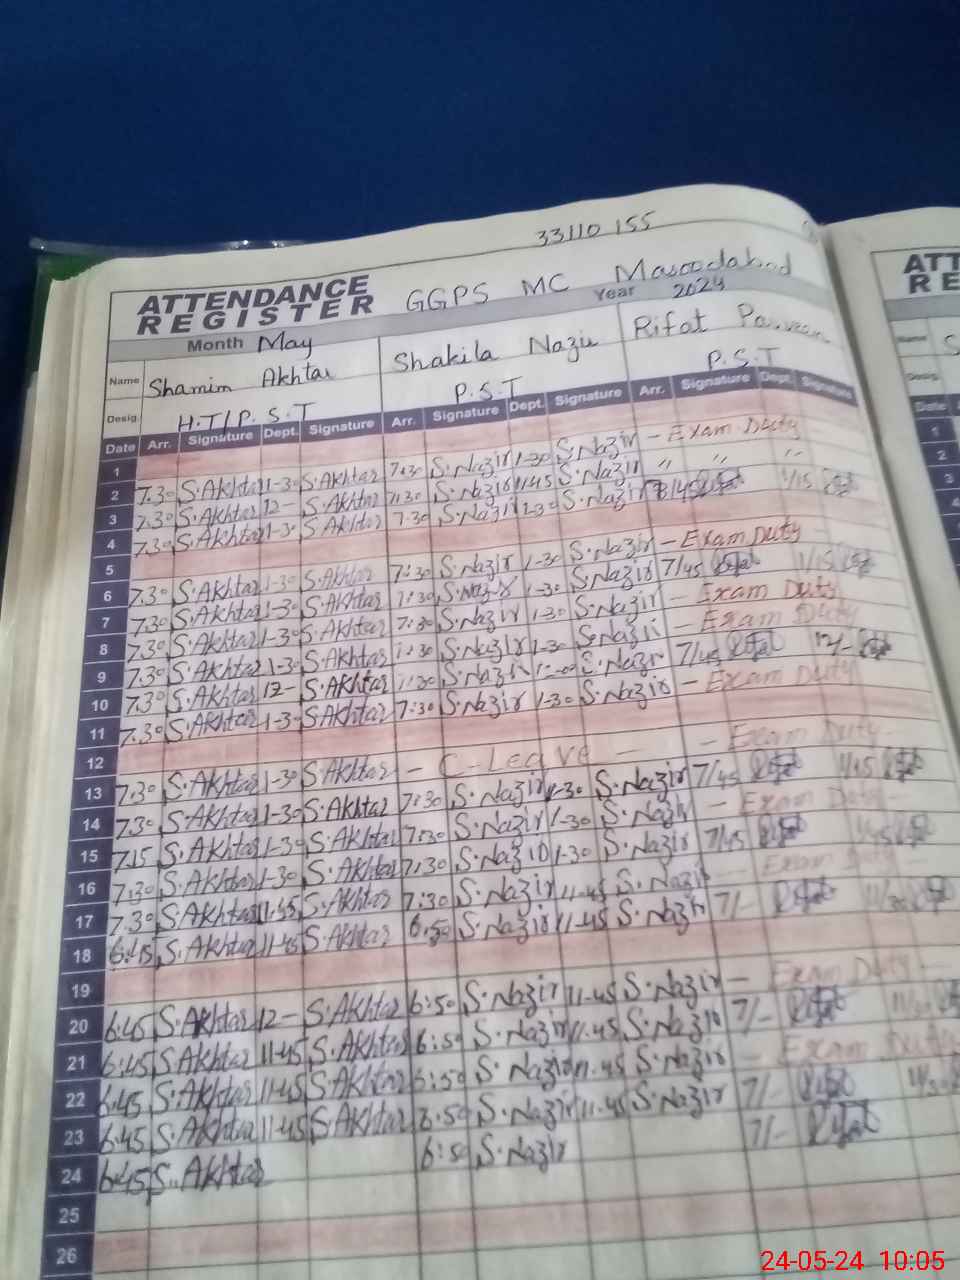 33110155
ATTENDANCE REGISTER GGPS MC Masoodabad
Month May Year 2024
Name Shamim Akhtar Shakila Nazir Rifat Parveen
Desig. H.T/P.S.T P.S.T P.S.T
Date Arr. Signature Dept. Signature Arr. Signature Dept. Signature Arr. Signature Dept. Signature
1
2 7.30 S.Akhtar 1-30 S.Akhtar 7:30 S.Nazir 1-30 S.Nazir - Exam Duty
3 7.30 S.Akhtar 12- S.Akhtar 7:30 S.Nazir 11.45 S.Nazir " " "
4 7.30 S.Akhtar 1-30 S.Akhtar 7.30 S.Nazir 1-30 S.Nazir 8/45 1/15
5
6 7.30 S.Akhtar 1-30 S.Akhtar 7:30 S.Nazir 1-30 S.Nazir - Exam Duty
7 7.30 S.Akhtar 1-30 S.Akhtar 7:30 S.Nazir 1-30 S.Nazir 7/45 1/15
8 7.30 S.Akhtar 1-30 S.Akhtar 7:30 S.Nazir 1-30 S.Nazir - Exam Duty
9 7.30 S.Akhtar 1-30 S.Akhtar 7:30 S.Nazir 1-30 S.Nazir - Exam Duty
10 7.30 S.Akhtar 12- S.Akhtar 7:30 S.Nazir S.Nazir 7/45 12/-
11 7.30 S.Akhtar 1-30 S.Akhtar 7:30 S.Nazir 1-30 S.Nazir - Exam Duty
12
13 7.30 S.Akhtar 1-30 S.Akhtar - C-Leave - - Exam Duty
14 7.30 S.Akhtar 1-30 S.Akhtar 7:30 S.Nazir 1-30 S.Nazir 7/45
15 7.15 S.Akhtar 1-30 S.Akhtar 7:30 S.Nazir 1-30 S.Nazir - Exam Duty
16 7.30 S.Akhtar 1-30 S.Akhtar 7:30 S.Nazir 1-30 S.Nazir 7/45
17 7.30 S.Akhtar 11.45 S.Akhtar 7:30 S.Nazir 11-45 S.Nazir Exam Duty
18 6:45 S.Akhtar 11-45 S.Akhtar 6.50 S.Nazir 11-45 S.Nazir 7/- 11/30
19
20 6.45 S.Akhtar 12- S.Akhtar 6:50 S.Nazir 11-45 S.Nazir - Exam Duty
21 6:45 S.Akhtar 11-45 S.Akhtar 6:50 S.Nazir 11-45 S.Nazir 7/-
22 6.45 S.Akhtar 11-45 S.Akhtar 6:50 S.Nazir 11-45 S.Nazir - Exam Duty
23 6:45 S.Akhtar 11-45 S.Akhtar 6:50 S.Nazir 11-45 S.Nazir 7/- 11/30
24 6:45 S.Akhtar 6:50 S.Nazir 7/-
25
26
ATT
RE
Name S
Desig.
Date A
1
2
3
4
24-05-24 10:05